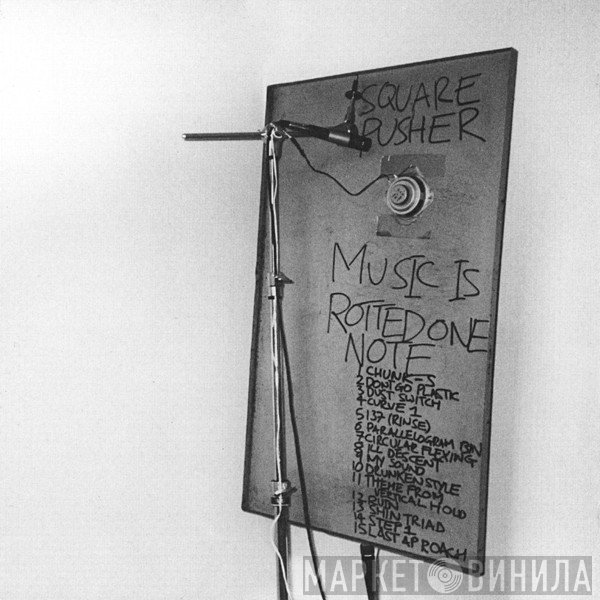 SQUARE
PUSHER
MUSIC IS
ROTTED ONE
NOTE
1 CHUNK-S
2 DON'T GO PLASTIC
3 DUST SWITCH
4 CURVE 1
5 137 (RINSE)
6 PARALLELOGRAM BIN
7 CIRCULAR FLEXING
8 ILL DESCENT
9 MY SOUND
10 DRUNKEN STYLE
11 THEME FROM
VERTICAL HOLD
12 RUIN
13 SHIN TRIAD
14 STEP 1
15 LAST AP ROACH
МАРКЕТ ВИНИЛА